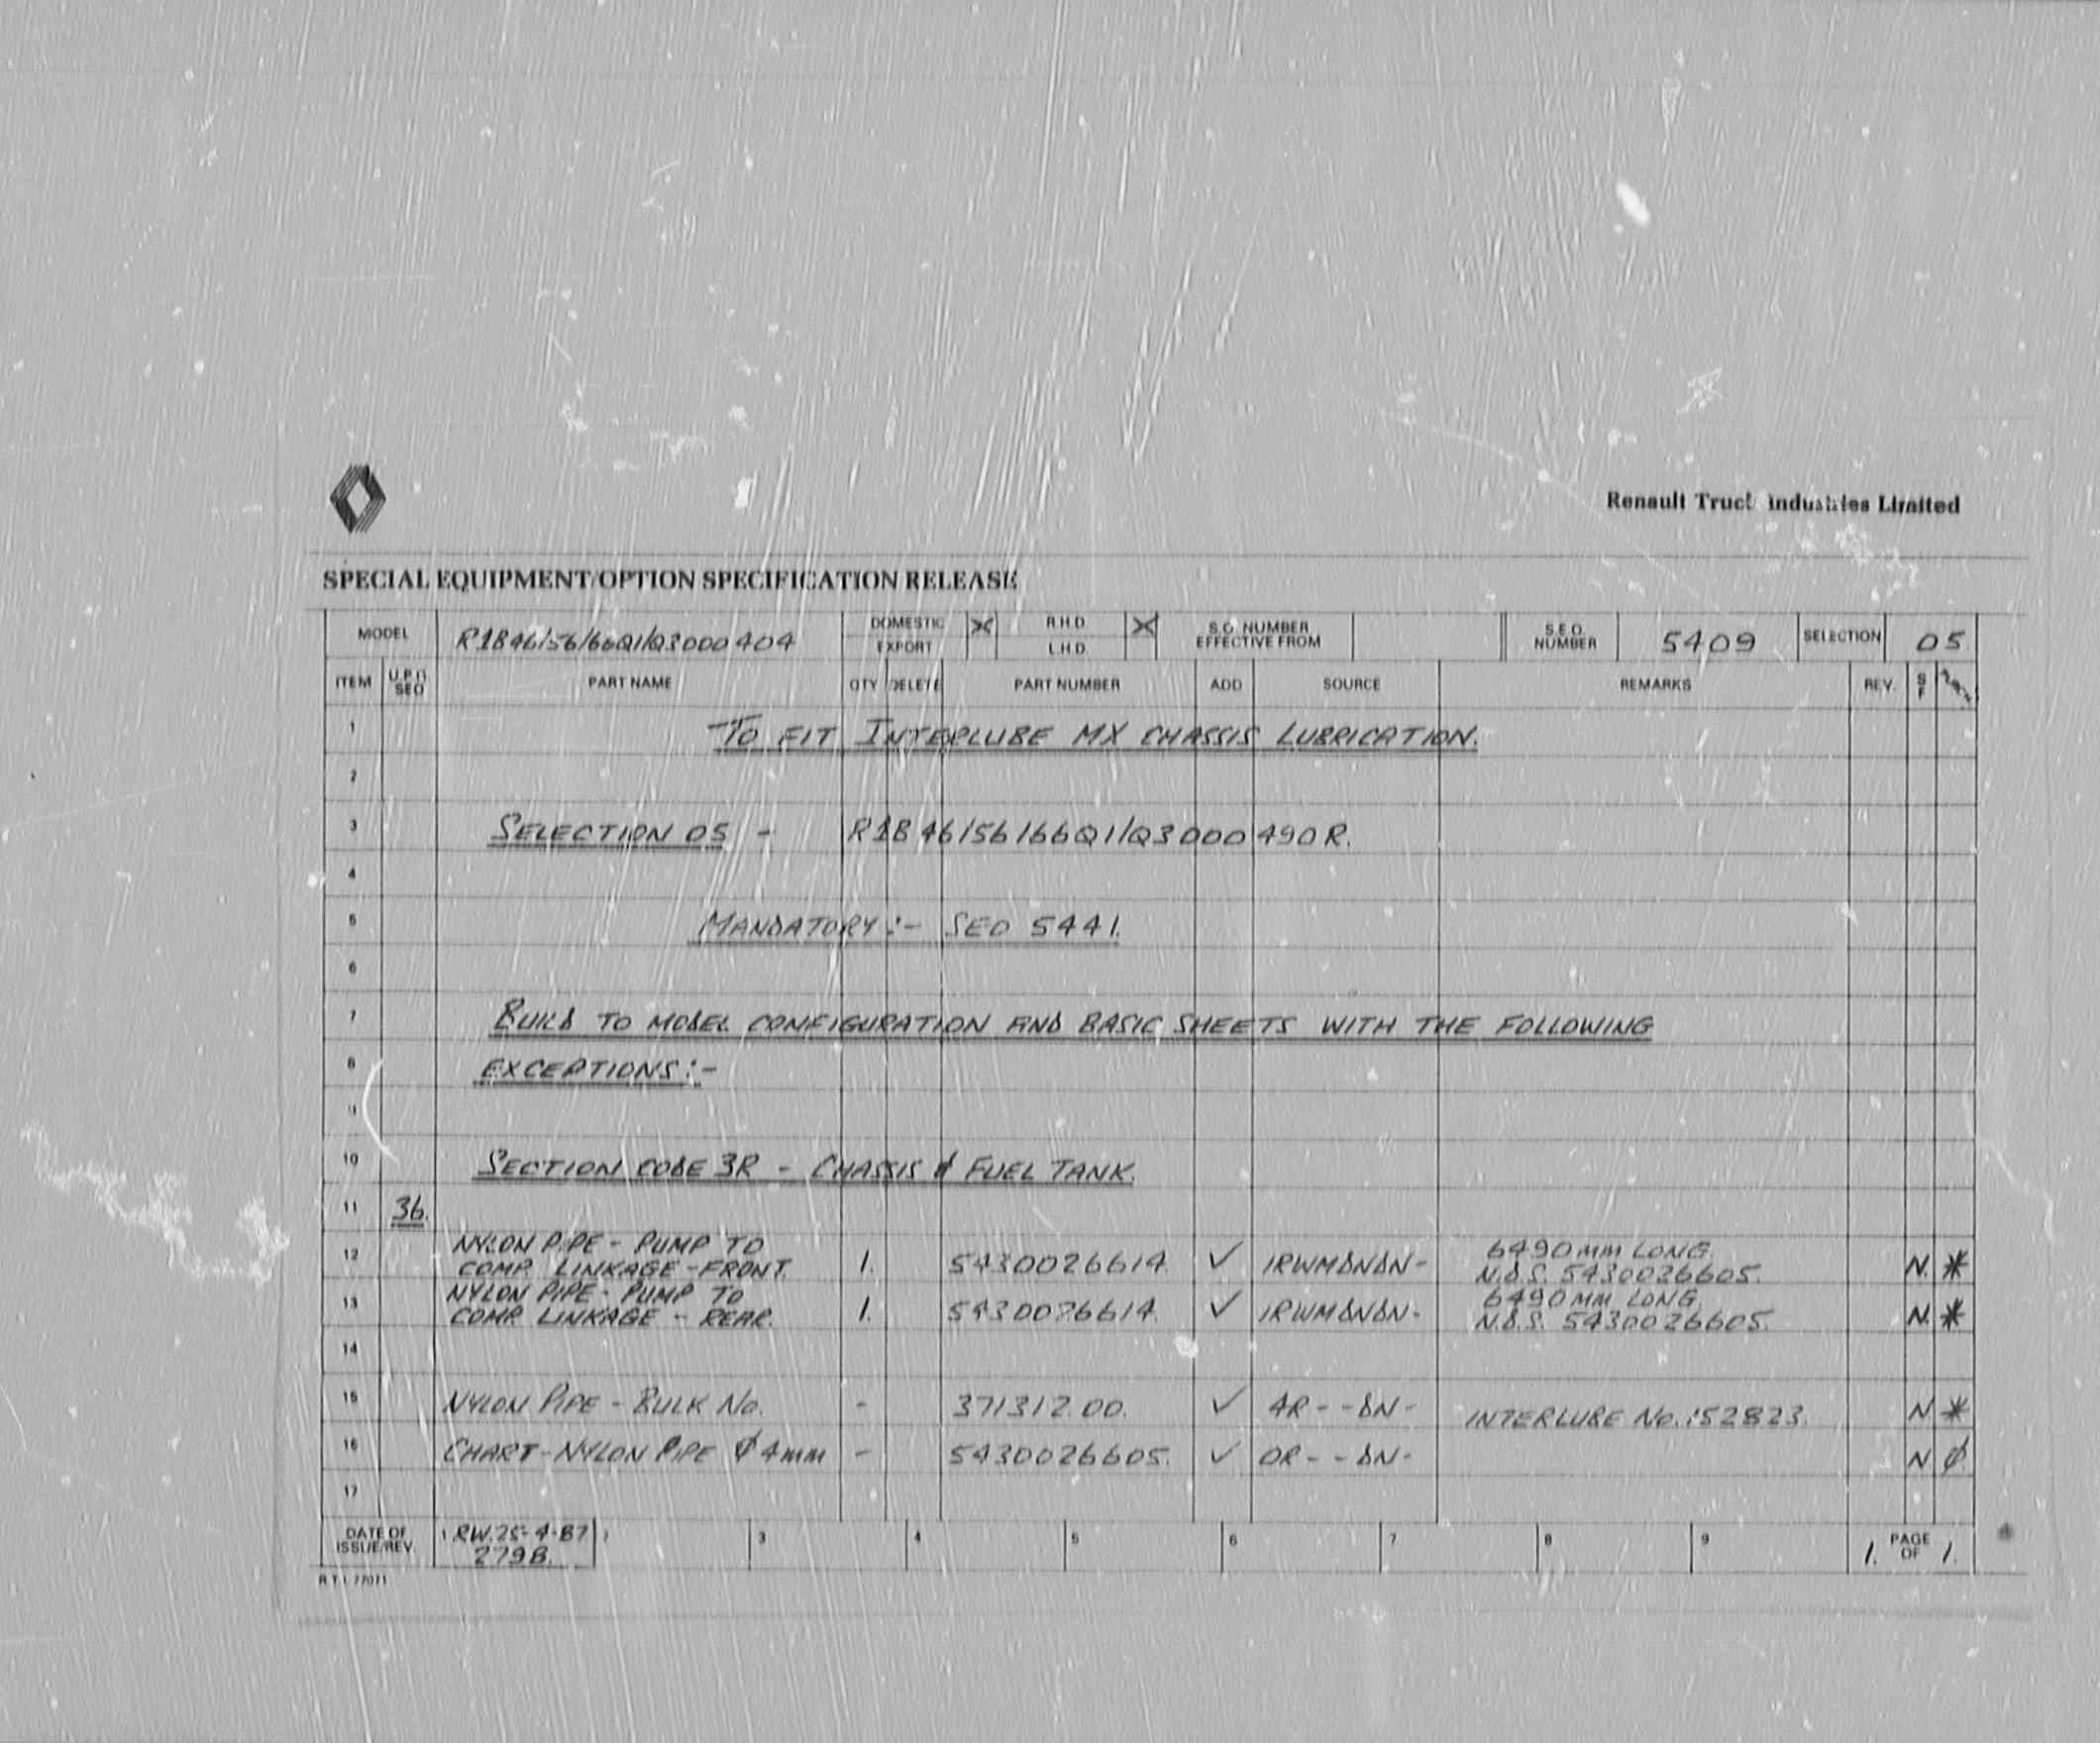 Renault Truck Industries Limited
SPECIAL EQUIPMENT/OPTION SPECIFICATION RELEASE
MODEL R1B46/56/66Q1/Q3000404 DOMESTIC X R.H.D. X S.O. NUMBER EFFECTIVE FROM S.E.O. NUMBER 5409 SELECTION 05
EXPORT L.H.D.
ITEM U.P.G. SEO PART NAME QTY DELETE PART NUMBER ADD SOURCE REMARKS REV. S F
1 TO FIT INTERLUBE MX CHASSIS LUBRICATION.
2
3 SELECTION 05 - R1B46/56/66Q1/Q3000490R.
4
5 MANDATORY:- SEO 5441.
6
7 BUILD TO MODEL CONFIGURATION AND BASIC SHEETS WITH THE FOLLOWING
8 EXCEPTIONS:-
9
10 SECTION CODE 3R - CHASSIS & FUEL TANK.
11 36.
12 NYLON PIPE - PUMP TO COMP. LINKAGE - FRONT. 1. 5430026614. ✓ IRWMDNDN- 6490MM LONG. N.D.S. 5430026605. N. *
13 NYLON PIPE - PUMP TO COMP. LINKAGE - REAR. 1. 5430026614. ✓ IRWMDNDN- 6490MM LONG N.D.S. 5430026605. N. *
14
15 NYLON PIPE - BULK No. - 371312.00. ✓ AR--DN- INTERLUBE No. 152823. N *
16 CHART - NYLON PIPE φ 4mm - 5430026605. ✓ OR--DN- N φ.
17
DATE OF ISSUE/REV. 1 RW.25-4-87 3 4 5 6 7 8 9 1. PAGE OF 1.
279B.
R.T.I. 77071